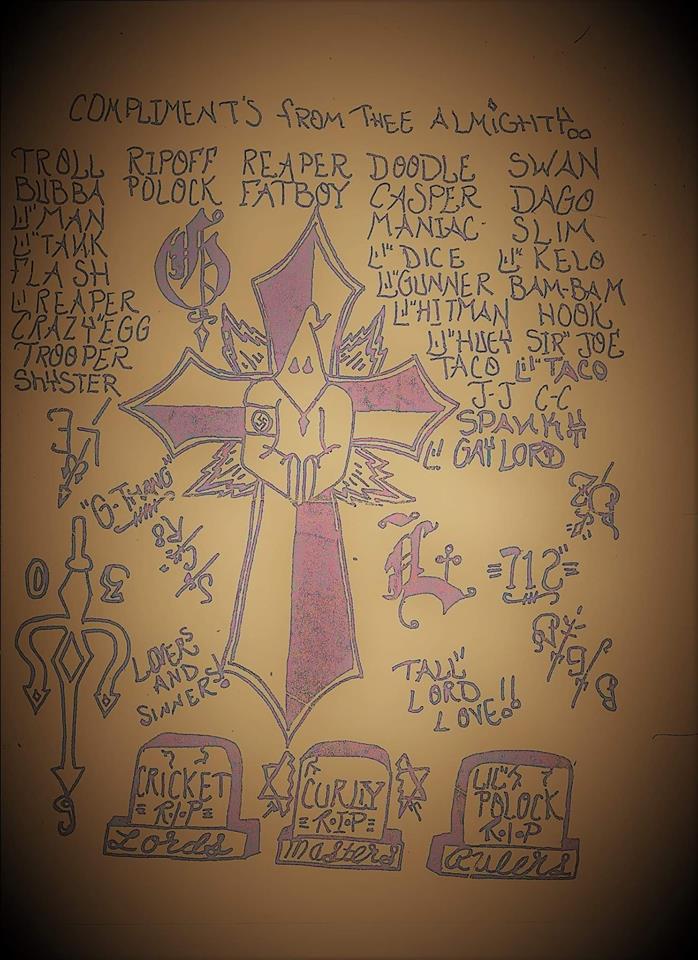 COMPLIMENT'S from THEE ALMIGHTY
TROLL RIPOFF REAPER DOODLE SWAN
BUBBA POLOCK FATBOY CASPER DAGO
LIL" MAN MANIAC SLIM
LIL" TANK LIL" DICE LIL" KELO
FLASH LIL" GUNNER BAM-BAM
LIL' REAPER LIL" HITMAN HOOK
CRAZY "EGG LIL" HUEY SIR" JOE
TROOPER TACO LIL" TACO
SHYSTER J-J C-C
SPANKY
LIL' GAYLORD
G
"G-THANG"
L
="712"=
0 3
9
LOVERS
AND
SINNERS!
TALL"
LORD
LOVE!!
CRICKET
=R.I.P=
Lords
CURLY
=R.I.P=
Masters
LIL"
POLOCK
R.I.P
Rulers